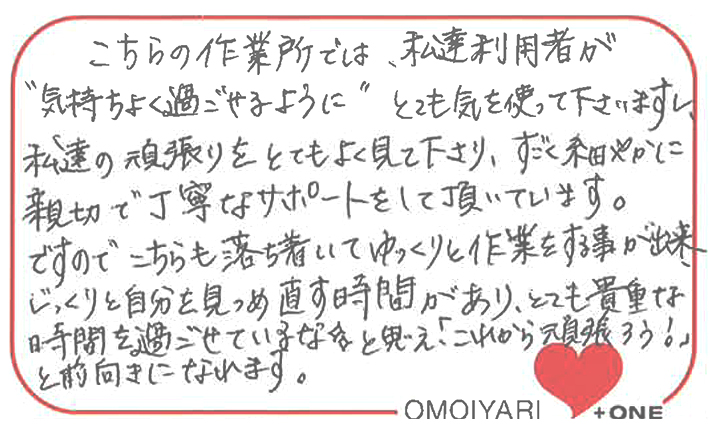 こちらの作業所では、私達利用者が
"気持ちよく過ごせるように" とても気を使って下さいますし、
私達の頑張りをとてもよく見て下さり、すごく細やかに
親切で丁寧なサポートをして頂いています。
ですのでこちらも落ち着いてゆっくりと作業をする事が出来、
じっくりと自分を見つめ直す時間があり、とても貴重な
時間を過ごせているなぁと思え「これから頑張ろう!」
と前向きになれます。
OMOIYARI +ONE